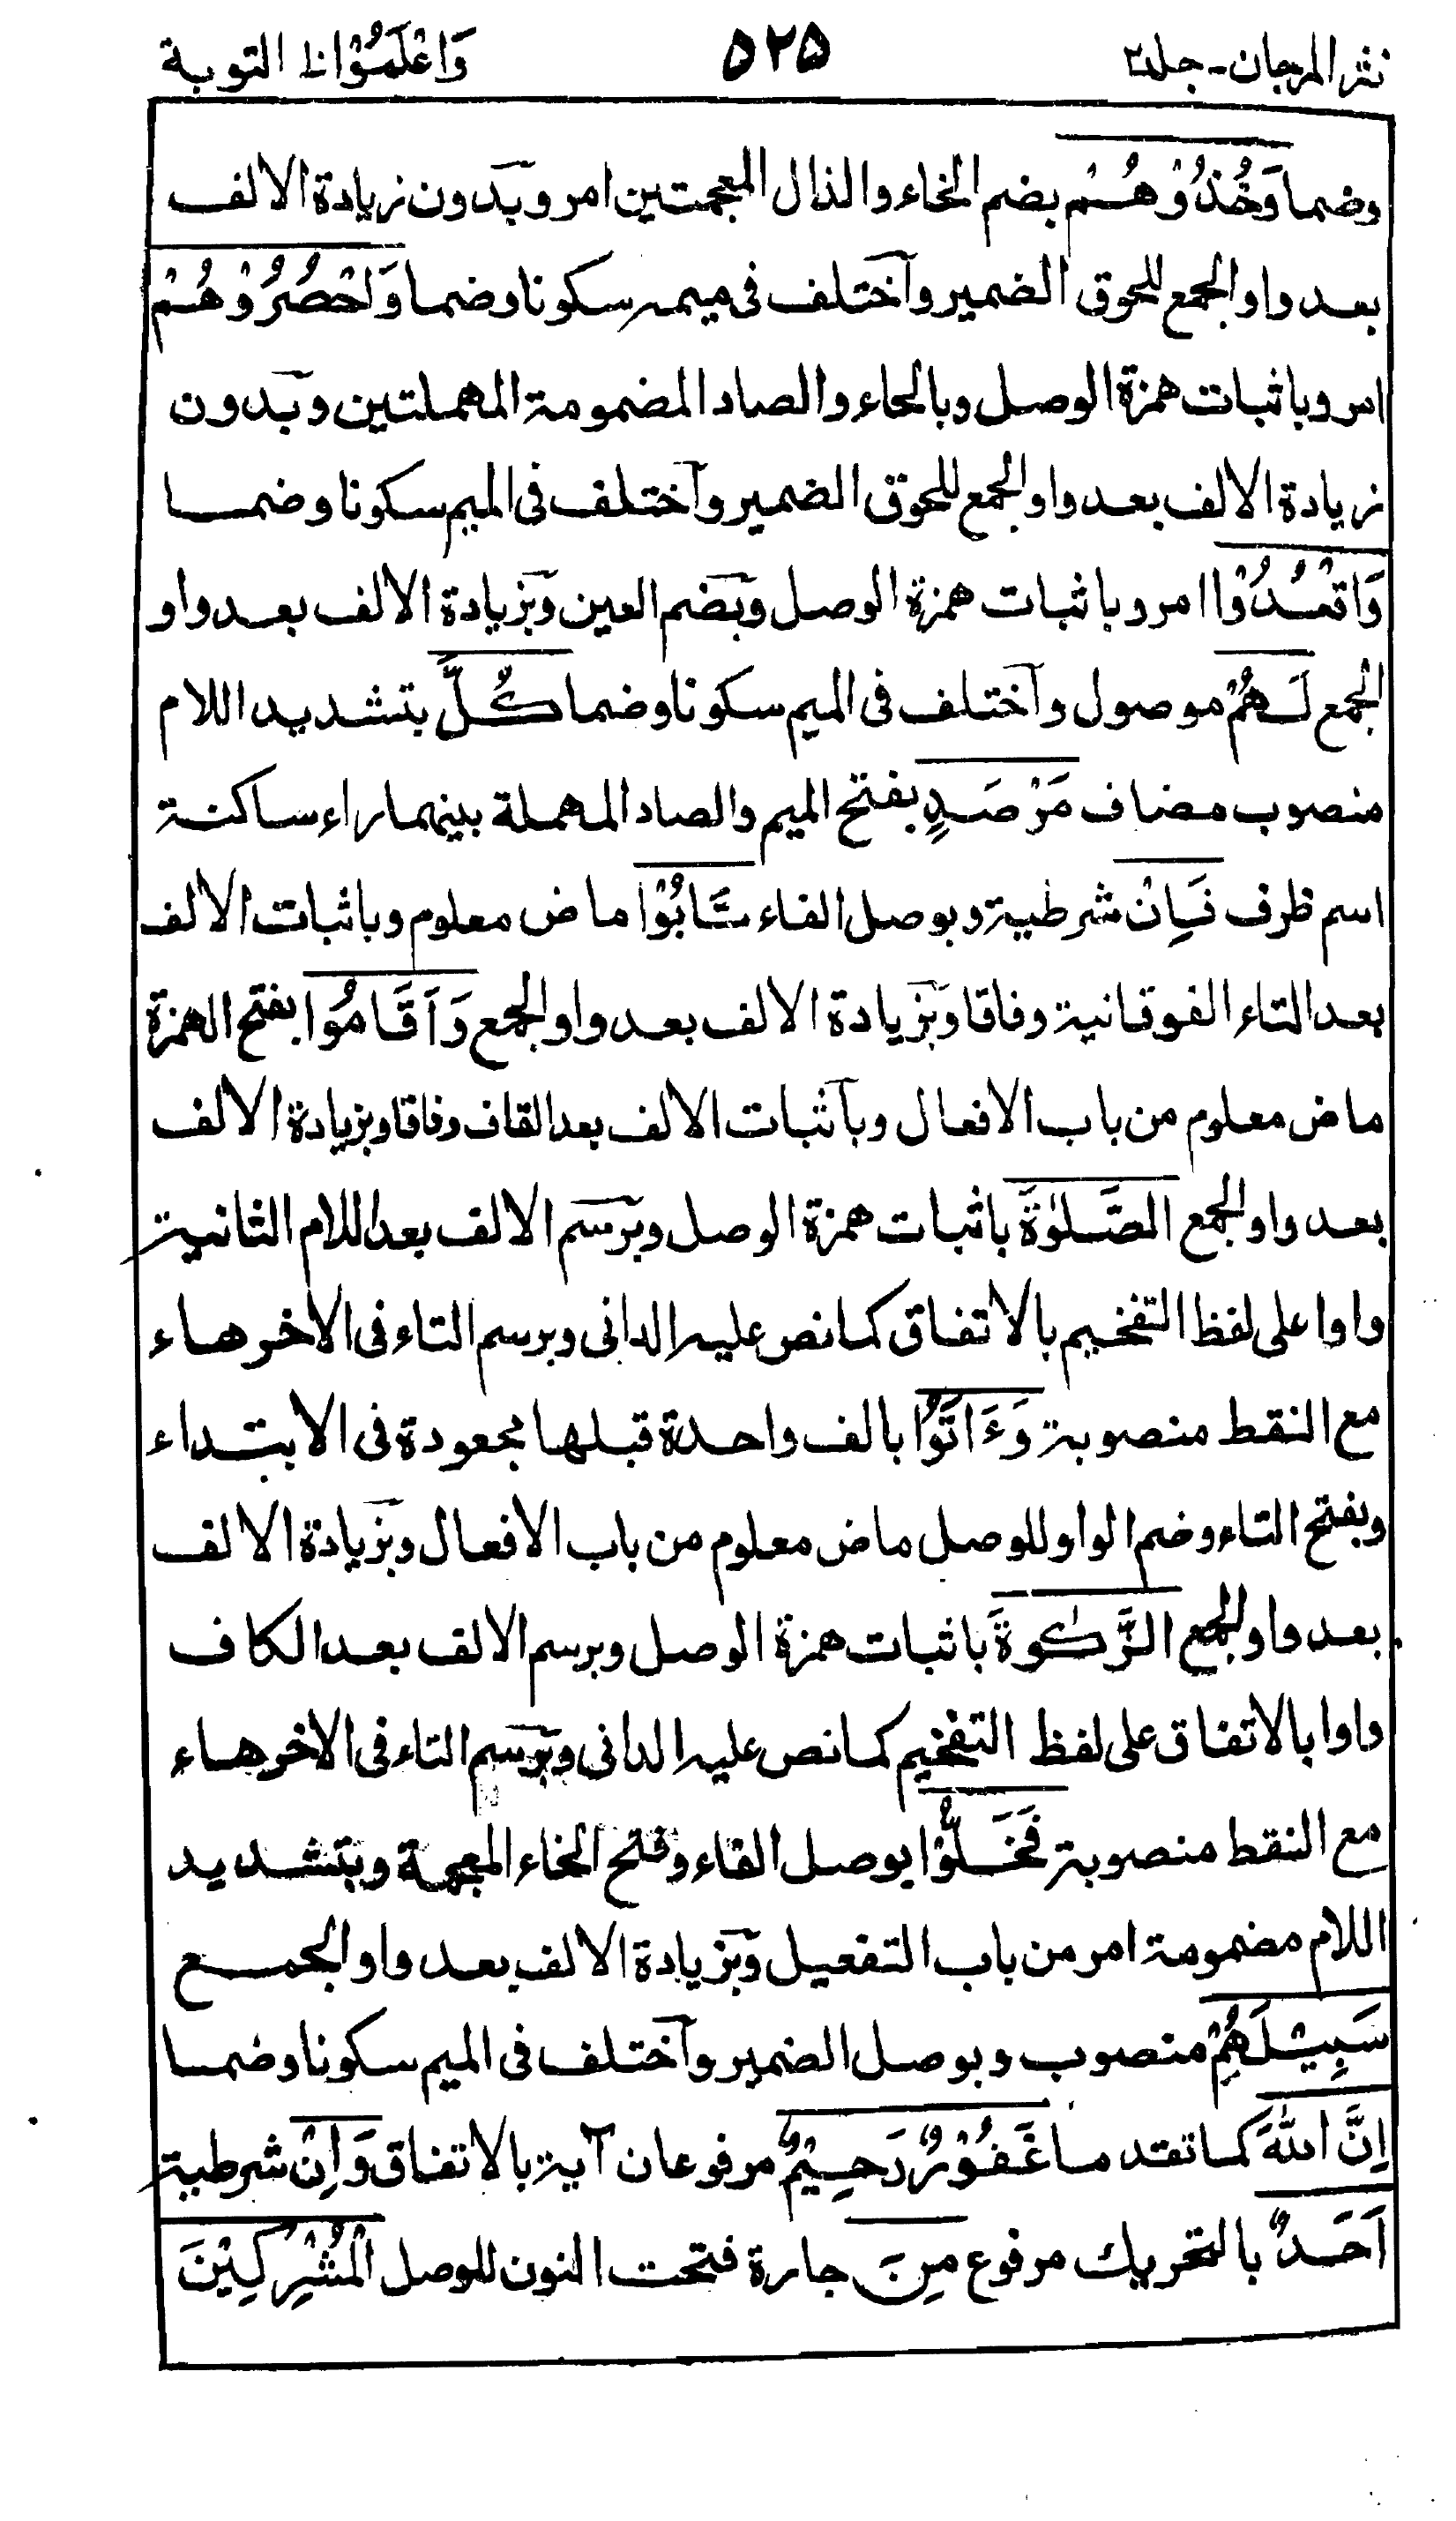 نثر المرجان - جلد ٢ ٥٢٥ وَاعْلَمُوْا ١٠ التوبة
وضما وَخُذُوْهُمْ بضم الخاء والذال المعجمتين امر وبدون زيادة الالف
بعد واو الجمع للحوق الضمير وآختلف فى ميمه سكونا وضما وَاحْصُرُوْهُمْ
امر وباثبات همزة الوصل وبالحاء والصاد المضمومة المهملتين وبدون
زيادة الالف بعد واو الجمع للحوق الضمير وآختلف فى الميم سكونا وضما
وَاقْعُدُوْا امر وباثبات همزة الوصل وبضم العين وبزيادة الالف بعد واو
الجمع لَهُمْ موصول وآختلف فى الميم سكونا وضما كُلَّ بتشديد اللام
منصوب مضاف مَرْصَدٍ بفتح الميم والصاد المهملة بينهما راء ساكنة
اسم ظرف فَاِنْ شرطية وبوصل الفاء تَابُوْا ماض معلوم وباثبات الالف
بعد التاء الفوقانية وفاقا وبزيادة الالف بعد واو الجمع وَاَقَامُوا بفتح الهمزة
ماض معلوم من باب الافعال وبآثبات الالف بعد القاف وفاقا وبزيادة الالف
بعد واو الجمع الصَّلٰوةَ باثبات همزة الوصل وبرسم الالف بعد اللام الثانية
واوا على لفظ التفخيم بالاتفاق كما نص عليه الدانى وبرسم التاء فى الاخر هاء
مع النقط منصوبة وَءَاتَوُا بالف واحدة قبلها مجعودة فى الابتداء
وبفتح التاء وضم الواو للوصل ماض معلوم من باب الافعال وبزيادة الالف
بعد واو الجمع الزَّكٰوةَ باثبات همزة الوصل وبرسم الالف بعد الكاف
واوا بالاتفاق على لفظ التفخيم كما نص عليه الدانى وبرسم التاء فى الاخر هاء
مع النقط منصوبة فَخَلُّوْا بوصل الفاء وفتح الخاء المعجمة وبتشديد
اللام مضمومة امر من باب التفعيل وبزيادة الالف بعد واو الجمع
سَبِيْلَهُمْ منصوب وبوصل الضمير وآختلف فى الميم سكونا وضما
اِنَّ اللهَ كما تقد ما غَفُوْرٌ رَحِيْمٌ مرفوعان آية بالاتفاق وَاِنْ شرطية
اَحَدٌ بالتحريك مرفوع مِنَ جارة فتحت النون للوصل الْمُشْرِكِيْنَ